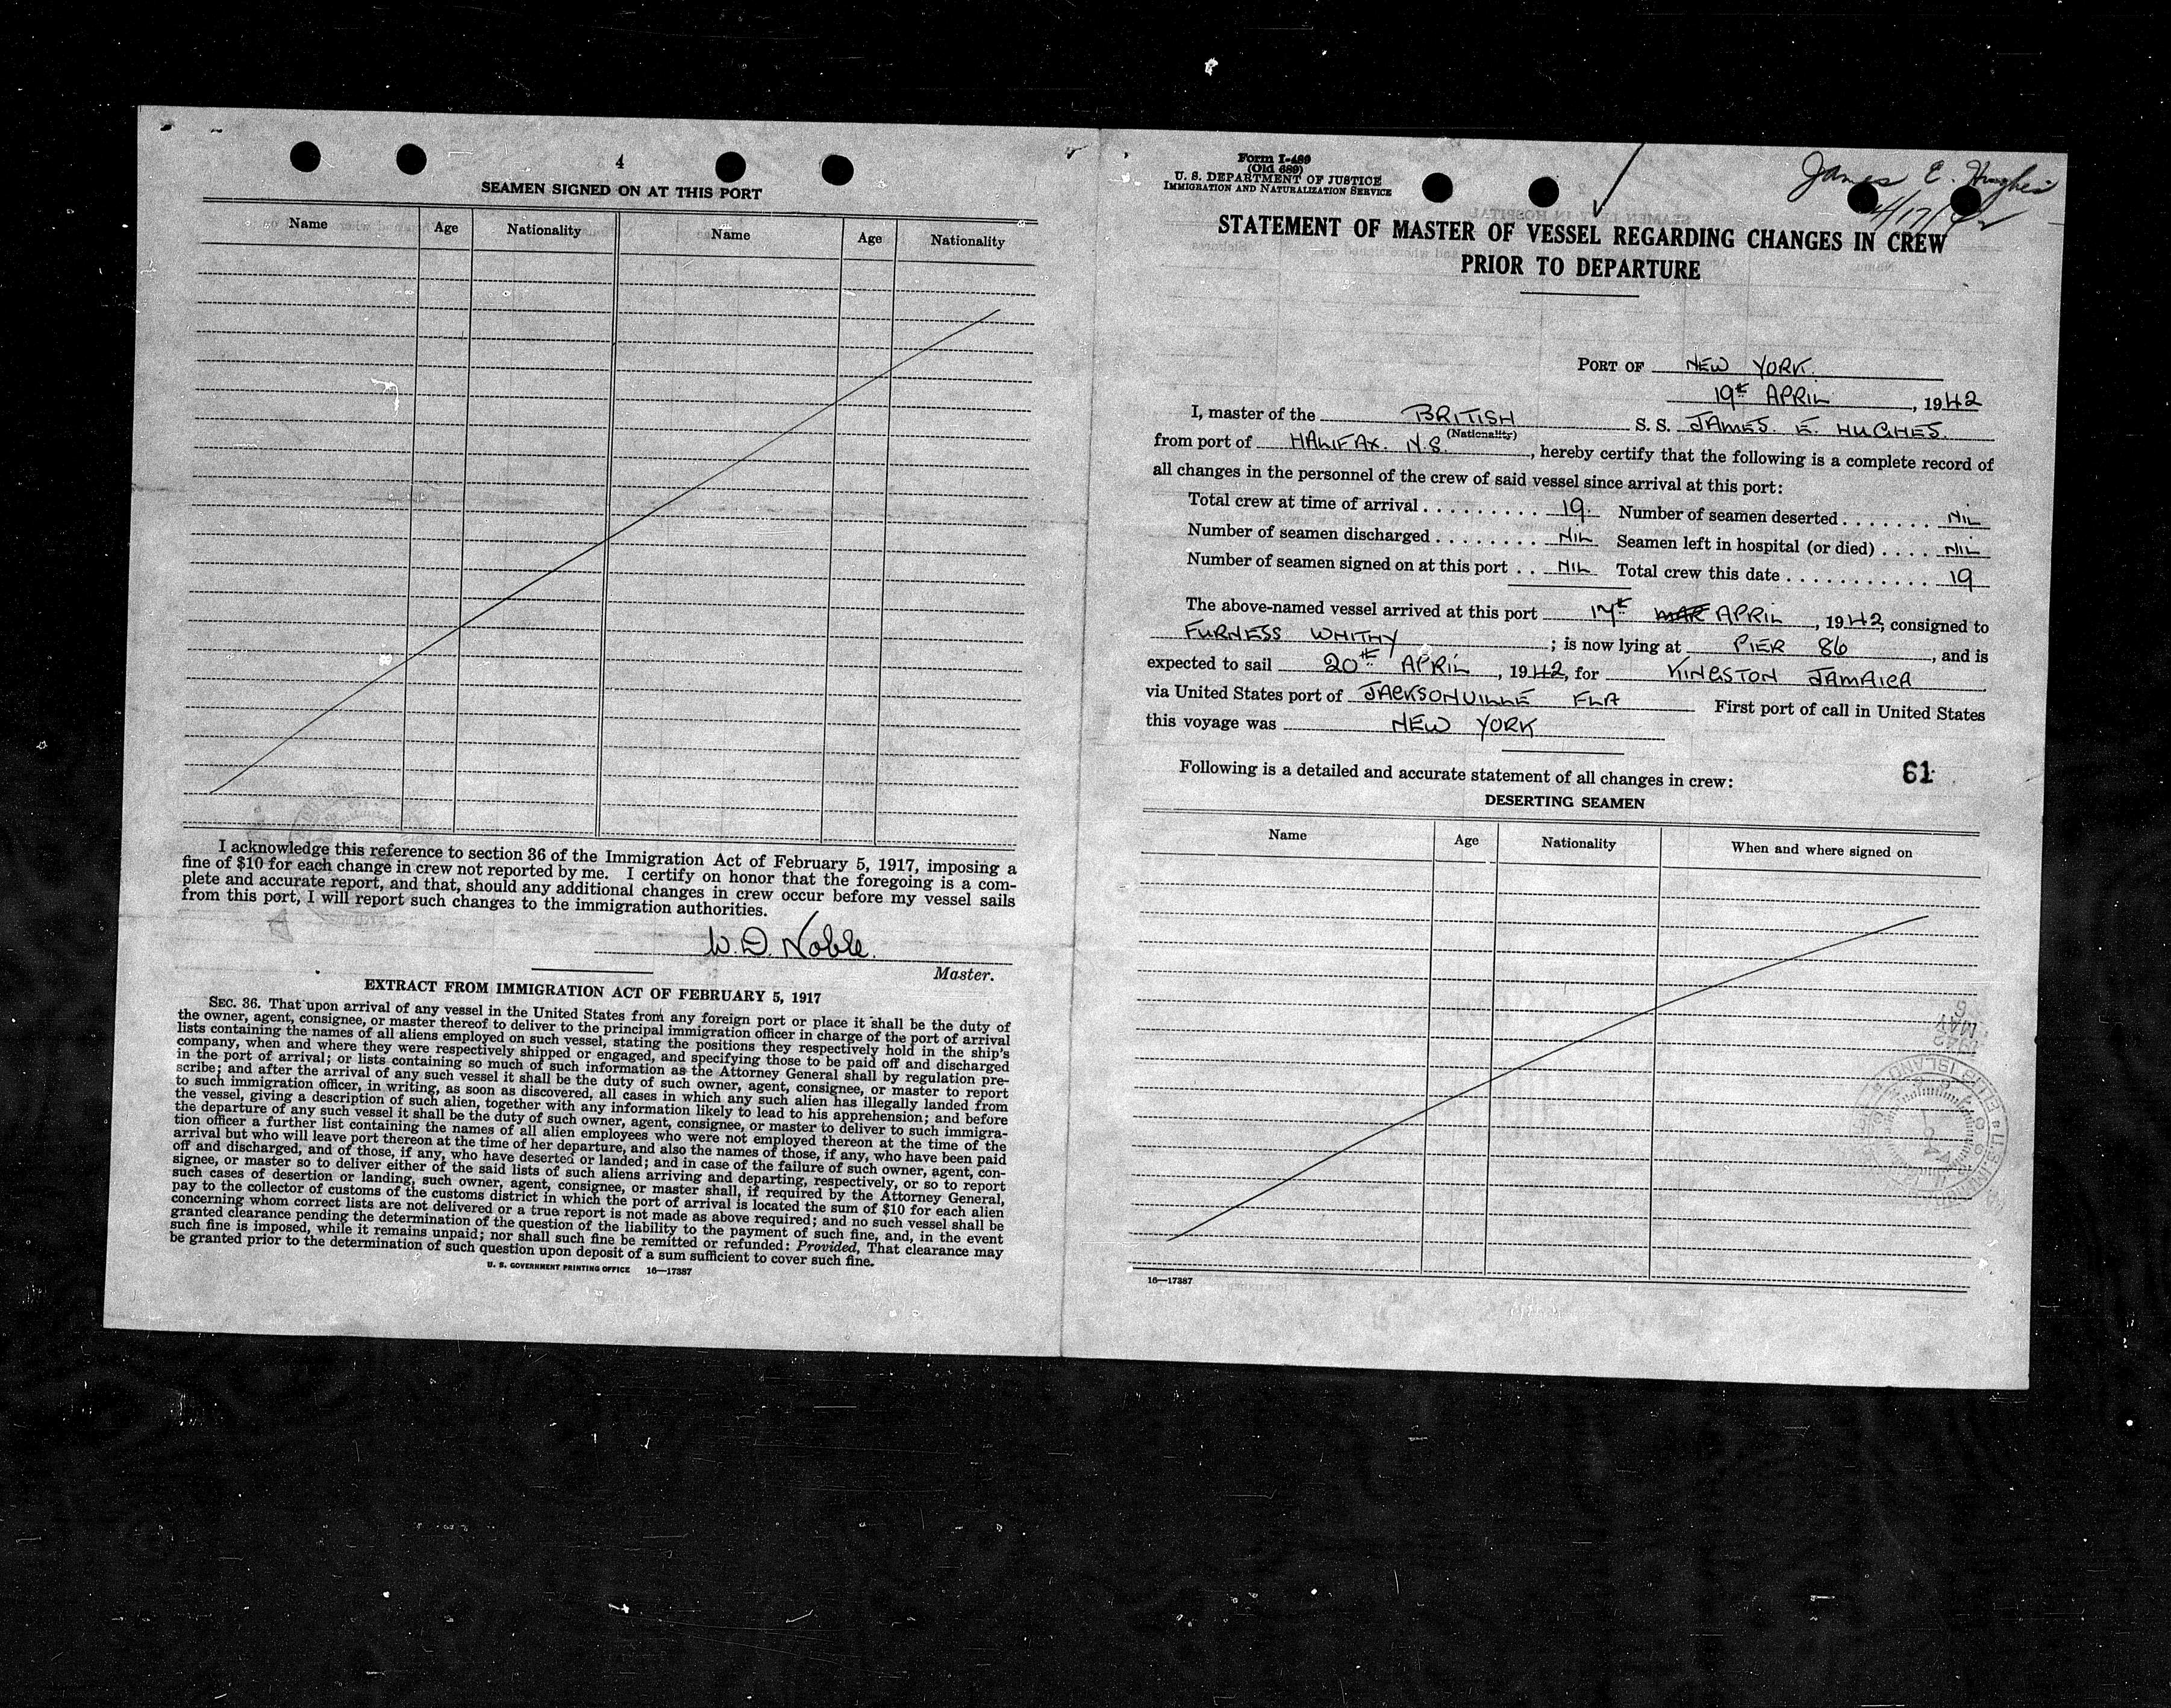 4
SEAMEN SIGNED ON AT THIS PORT
Name Age Nationality Name Age Nationality
I acknowledge this reference to section 36 of the Immigration Act of February 5, 1917, imposing a
fine of $10 for each change in crew not reported by me. I certify on honor that the foregoing is a com-
plete and accurate report, and that, should any additional changes in crew occur before my vessel sails
from this port, I will report such changes to the immigration authorities.
W. D. Noble.
Master.
EXTRACT FROM IMMIGRATION ACT OF FEBRUARY 5, 1917
SEC. 36. That upon arrival of any vessel in the United States from any foreign port or place it shall be the duty of
the owner, agent, consignee, or master thereof to deliver to the principal immigration officer in charge of the port of arrival
lists containing the names of all aliens employed on such vessel, stating the positions they respectively hold in the ship's
company, when and where they were respectively shipped or engaged, and specifying those to be paid off and discharged
in the port of arrival; or lists containing so much of such information as the Attorney General shall by regulation pre-
scribe; and after the arrival of any such vessel it shall be the duty of such owner, agent, consignee, or master to report
to such immigration officer, in writing, as soon as discovered, all cases in which any such alien has illegally landed from
the vessel, giving a description of such alien, together with any information likely to lead to his apprehension; and before
the departure of any such vessel it shall be the duty of such owner, agent, consignee, or master to deliver to such immigra-
tion officer a further list containing the names of all alien employees who were not employed thereon at the time of the
arrival but who will leave port thereon at the time of her departure, and also the names of those, if any, who have been paid
off and discharged, and of those, if any, who have deserted or landed; and in case of the failure of such owner, agent, con-
signee, or master so to deliver either of the said lists of such aliens arriving and departing, respectively, or so to report
such cases of desertion or landing, such owner, agent, consignee, or master shall, if required by the Attorney General,
pay to the collector of customs of the customs district in which the port of arrival is located the sum of $10 for each alien
concerning whom correct lists are not delivered or a true report is not made as above required; and no such vessel shall be
granted clearance pending the determination of the question of the liability to the payment of such fine, and, in the event
such fine is imposed, while it remains unpaid; nor shall such fine be remitted or refunded: Provided, That clearance may
be granted prior to the determination of such question upon deposit of a sum sufficient to cover such fine.
U. S. GOVERNMENT PRINTING OFFICE 16—17387
Form I-489
(Old 689)
U. S. DEPARTMENT OF JUSTICE
IMMIGRATION AND NATURALIZATION SERVICE
James E. Hughes
4/17/42
STATEMENT OF MASTER OF VESSEL REGARDING CHANGES IN CREW
PRIOR TO DEPARTURE
PORT OF NEW YORK.
19th APRIL, 1942
I, master of the BRITISH S. S. JAMES. E. HUGHES.
(Nationality)
from port of HALIFAX. N.S., hereby certify that the following is a complete record of
all changes in the personnel of the crew of said vessel since arrival at this port:
Total crew at time of arrival . . . . . . . . . 19. Number of seamen deserted . . . . . . . NIL
Number of seamen discharged . . . . . . . . NIL Seamen left in hospital (or died) . . . . NIL
Number of seamen signed on at this port . . NIL Total crew this date . . . . . . . . . . . . 19
The above-named vessel arrived at this port 17th MAR APRIL, 1942, consigned to
FURNESS WHITHY; is now lying at PIER 86, and is
expected to sail 20th APRIL, 1942, for KINGSTON JAMAICA
via United States port of JACKSONVILLE FLA First port of call in United States
this voyage was NEW YORK
61
Following is a detailed and accurate statement of all changes in crew:
DESERTING SEAMEN
Name Age Nationality When and where signed on
16—17387